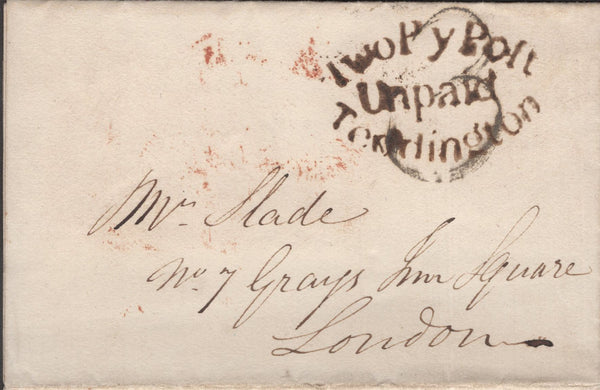 Two Py Post
Unpaid
Teddington
2
Mr. Slade
No. 7 Grays Inn Square
London